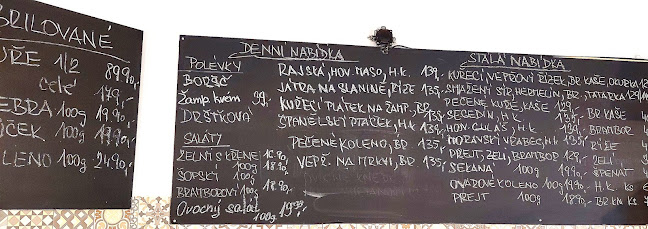 GRILOVANÉ
KUŘE 1/2 89,90,-
celé 179,-
ŽEBRA 100g 19.90,-
BŮČEK 100g 17,90,-
KOLENO 100g 24.90,-
DENNÍ NABÍDKA
POLÉVKY
BORŠČ
Žamp. krém 39,-
DRŠŤKOVÁ
SALÁTY
ZELNÍ S KŘENEM 16.90,-
100g 18.90,-
ŠOPSKÝ
BRAMBOROVÝ 100g 18.90,-
Ovocný salát
100g 19.90,-
RAJSKÁ, HOV. MASO, H.K. 139,-
JÁTRA NA SLANINĚ, RÝŽE 135,-
KUŘECÍ PLÁTEK NA ŽAMP., BR. 139,-
ŠPANĚLSKÝ PTÁČEK, H.K. 139,-
PEČENÉ KOLENO, BR. 135,-
VEPŘ. NA MRKVI, BR. 135,-
STÁLÁ NABÍDKA
KUŘECÍ, VEPŘOVÝ ŘÍZEK, BR. KAŠE, OKURKA
SMAŽENÝ SÝR, HERMELÍN, BR., TATARKA
PEČENÉ KUŘE, KAŠE 129,-
SEGEDÍN, H.K. 135,-
HOV. GULÁŠ, H.K. 139,-
MORAVSKÝ VRABEC, H.K. 135,-
PREJT, ZELÍ, BRAMBOR 129,-
SEKANÁ 100g 19.90,-
OVAROVÉ KOLENO 100g 19.90,-
PREJT 100g 18.90,-
BR KAŠE
BRAMBOR
RÝŽE
ZELÍ
ŠPENÁT
H.K. ks
BR. KN KS